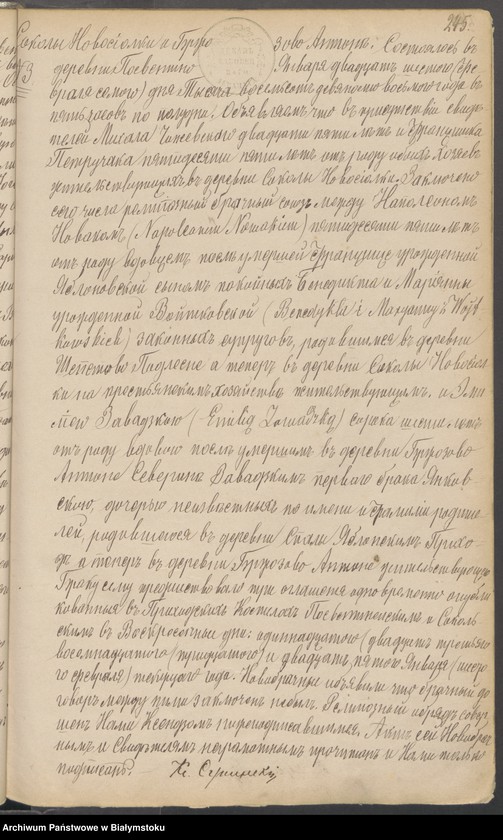 245.
Соколы Новосіолки и Бржо зово Антоли. Состоялось въ
3
деревни Посвентно Января двадцать шестого (Фе-
враля седьмого) дня Тысяча восемьсотъ девяносто восьмого года въ
пять часовъ по полудни. Объявляемъ что въ присутствіи свидѣ-
телей Михала двадцати пяти лѣтъ и Францишка
Петручака пятидесяти пяти лѣтъ отъ роду обоихъ Хозяевъ
жительствующихъ въ деревни Соколы Новосіолки. Заключено
сего числа религіозный брачный союзъ между Наполеономъ
Новакомъ (Napoleonem Nowakiem) пятидесяти пяти лѣтъ
отъ роду вдовцемъ послѣ умершей Францишкѣ урожденной
Яблоновской сыномъ покойныхъ Бенедикта и Маріянны
урожденной Войтковской (Benedykta i Maryanny z Wojt-
kowskich) законныхъ супруговъ, родившимся въ деревни
Шепетово Подлесне а теперъ въ деревни Соколы Новосіол-
ки на крестьянскомъ хозяйствѣ жительствующимъ. и Эми-
ліею Завадзкою (Emilią Zawadzką) сорока шести лѣтъ
отъ роду вдовою послѣ умершимъ въ деревни Бржозово
Антоли Северинѣ Завадзкимъ первого брака Янков-
скою, дочерью неизвѣстныхъ по имени и фамиліи родите-
лей, родившеюся въ деревни Яблонскимъ Прихо-
дѣ а теперъ въ деревни Бржозово Антоли жительствующею
Браку сему предшествовало три оглашенія одновременно опубли-
кованныя въ Приходскихъ Костелахъ Посвентнянскимъ и Соколь-
скимъ въ Воскресные дни: одиннадцатого (двадцать третьяго)
восемнадцатого (тридцатого) и двадцать пятого Января (шесто-
го февраля) текущего года. Новобрачные объявили что брачный до-
говоръ между ними заключенъ небылъ. Религіозный обрядъ совер-
шенъ Нами Ксендзомъ нижеподписавшимся. Актъ сей Новобрач-
нымъ и Свидѣтелямъ неграмотнымъ прочитанъ и Нами только
подписанъ.
Archiwum Państwowe w Białymstoku